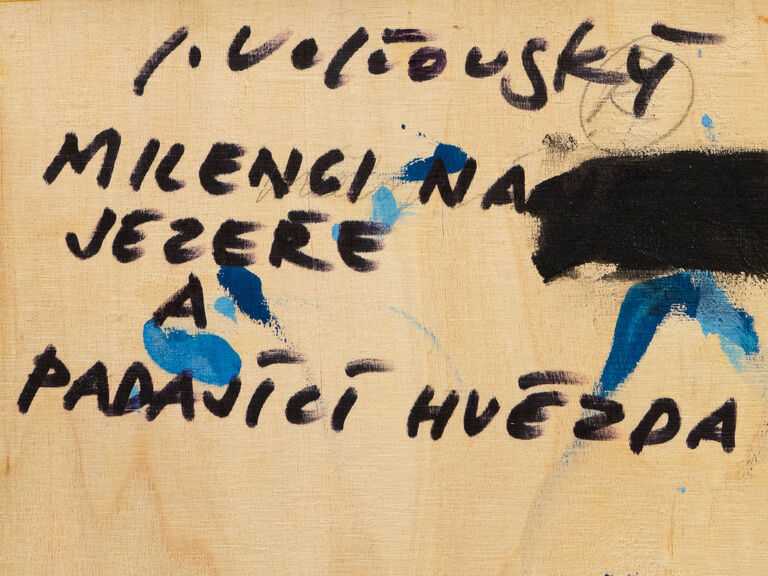 J. Velčovský
MILENCI NA
JEZEŘE
A
PADAJÍCÍ HVĚZDA